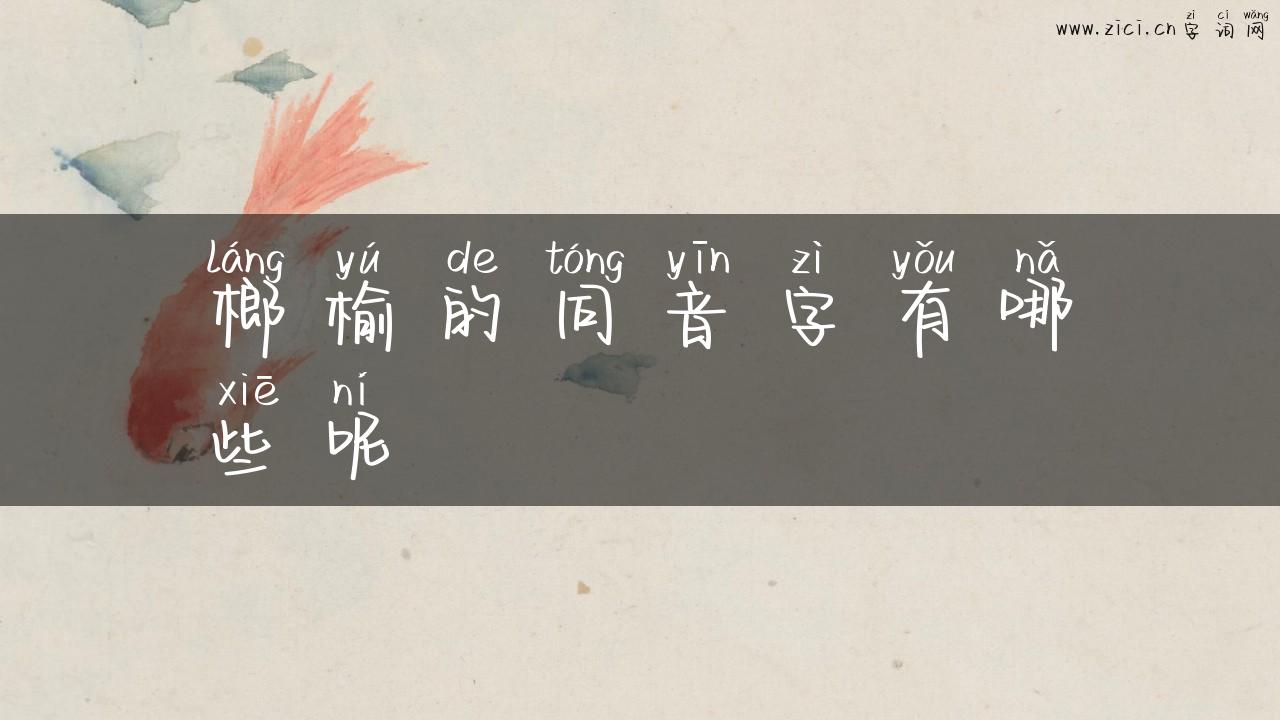 zì cí wǎng
www.zici.cn 字词网
láng yú de tóng yīn zì yǒu nǎ
榔榆的同音字有哪
xiē ní
些呢